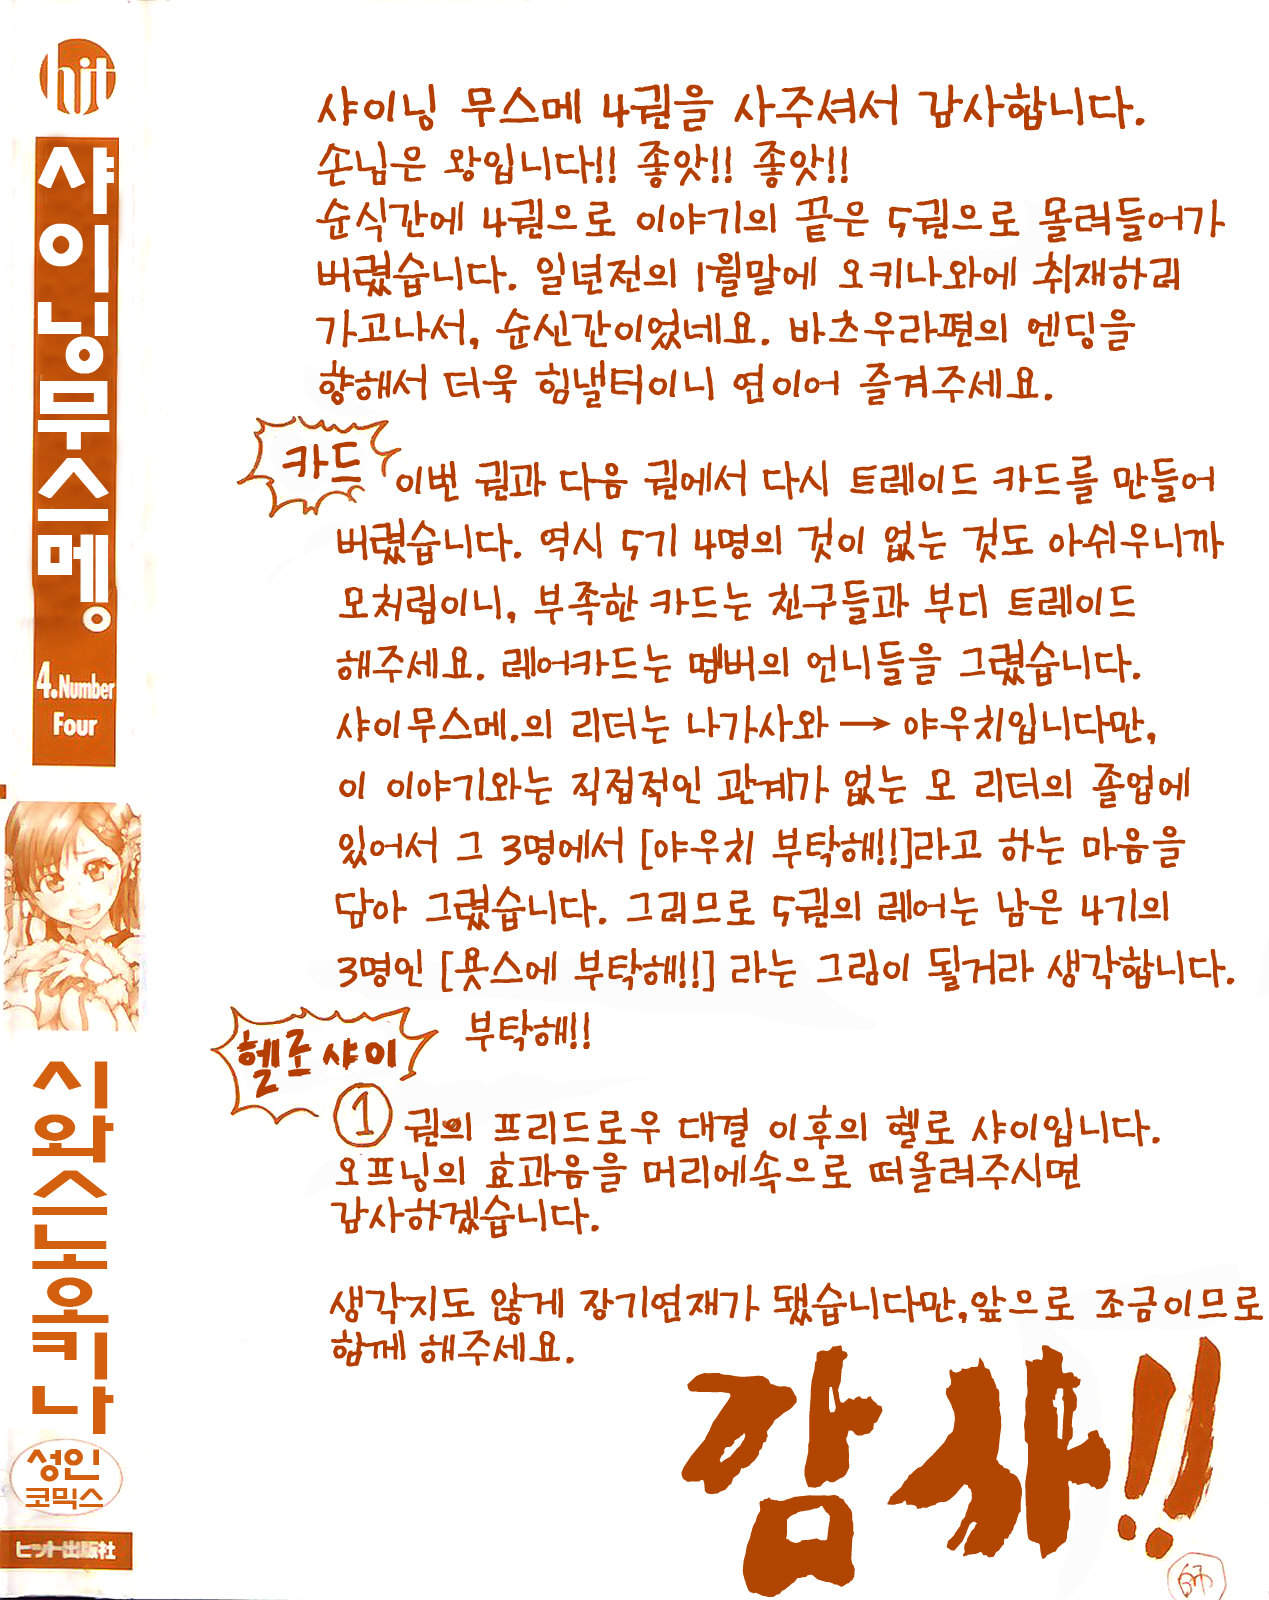 hit
샤이닝무스메
4.Number
Four
시와스노오키나
성인
코믹스
ヒット出版社
샤이닝 무스메 4권을 사주셔서 감사합니다.
손님은 왕입니다!! 좋앗!! 좋앗!!
순식간에 4권으로 이야기의 끝은 5권으로 몰려들어가
버렸습니다. 일년전의 1월말에 오키나와에 취재하러
가고나서, 순식간이었네요. 바츠우라편의 엔딩을
향해서 더욱 힘낼터이니 연이어 즐겨주세요.
카드
이번 권과 다음 권에서 다시 트레이드 카드를 만들어
버렸습니다. 역시 5기 4명의 것이 없는 것도 아쉬우니까
모처럼이니, 부족한 카드는 친구들과 부디 트레이드
해주세요. 레어카드는 멤버의 언니들을 그렸습니다.
샤이무스메.의 리더는 나가사와 → 야우치입니다만,
이 이야기와는 직접적인 관계가 없는 모 리더의 졸업에
있어서 그 3명에서 [야우치 부탁해!!]라고 하는 마음을
담아 그렸습니다. 그러므로 5권의 레어는 남은 4기의
3명인 [욧스에 부탁해!!] 라는 그림이 될거라 생각합니다.
부탁해!!
헬로 샤이
① 권의 프리드로우 대결 이후의 헬로 샤이입니다.
오프닝의 효과음을 머리에속으로 떠올려주시면
감사하겠습니다.
생각지도 않게 장기연재가 됐습니다만,앞으로 조금이므로
함께 해주세요.
감사!!